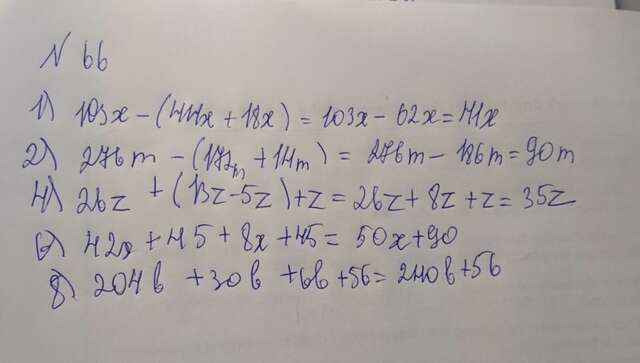 N 66
1) 103x - (44x + 18x) = 103x - 62x = 41x
2) 276m - (172m + 14m) = 276m - 186m = 90m
4) 26z + (13z - 5z) + z = 26z + 8z + z = 35z
6) 42x + 45 + 8x + 45 = 50x + 90
8) 204b + 30b + 6b + 56 = 240b + 56